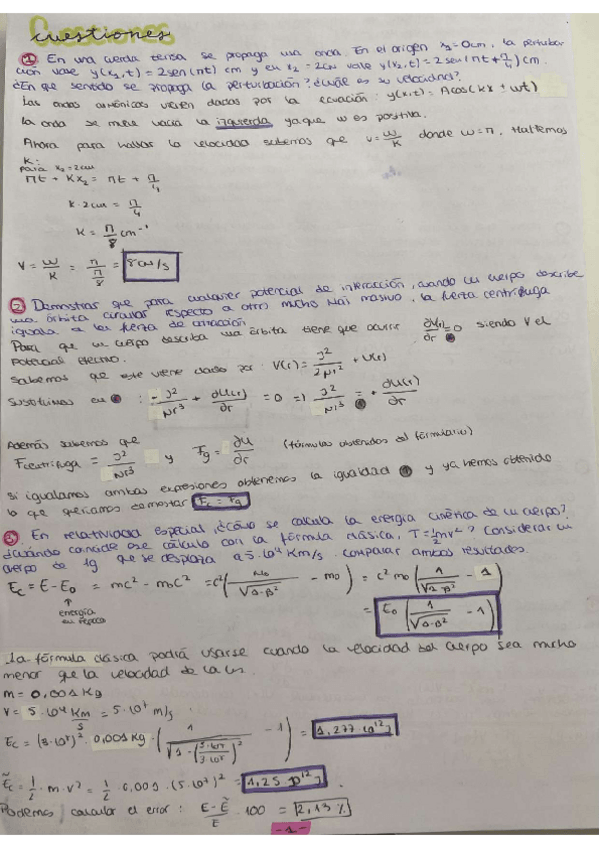 Cuestiones
① En una cuerda tensa se propaga una onda. En el origen x₁=0cm, la perturba
ción vale y(x₁,t) = 2sen(πt) cm y en x₂ = 2cm vale y(x₂,t) = 2sen(πt + π/4) cm.
¿En que sentido se propaga la perturbación? ¿Cuál es su velocidad?
Las ondas armónicas vienen dadas por la ecuación: y(x,t) = A cos(kx ± wt)
la onda se mueve hacia la izquierda ya que w es positiva.
Ahora para hallar la velocidad sabemos que v = w/k donde w = π. Hallemos
k:
para x₂ = 2cm
πt + kx₂ = πt + π/4
k · 2cm = π/4
k = π/8 cm⁻¹
v = w/k = π/(π/8) = 8cm/s
② Demostrar que para cualquier potencial de interacción, cuando un cuerpo describe
una órbita circular respecto a otro mucho más masivo, la fuerza centrífuga
iguala a la fuerza de atracción.
Para que un cuerpo describa una órbita tiene que ocurrir =0 siendo V el
potencial efectivo.
Sabemos que este viene dado por: V(r) = + U(r)
Sustituimos en : + ∂U(r)/∂r = 0 => = + ∂U(r)/∂r
Además sabemos que
Fcentrífuga = y Fg = ∂U/∂r (fórmulas obtenidas del formulario)
Si igualamos ambas expresiones obtenemos la igualdad y ya hemos obtenido
lo que queríamos demostrar = Fg
③ En relatividad especial, ¿cómo se calcula la energía cinética de un cuerpo?
¿Cuándo coincide ese cálculo con la fórmula clásica, T = ½mv²? Considerar un
cuerpo de 1g que se desplaza a 5·10⁴ Km/s. Comparar ambos resultados.
Ec = E - E₀ = mc² - m₀c² = c²(m₀/√(1-β²) - m₀) = c² m₀(1/√(1-β²) - 1)
↑
energía
en reposo
= E₀(1/√(1-β²) - 1)
La fórmula clásica podrá usarse cuando la velocidad del cuerpo sea mucho
menor que la velocidad de la luz.
m = 0,001 Kg
v = 5·10⁴ Km/s = 5·10⁷ m/s
Ec = (3·10⁸)² · 0,001 Kg · (1/√(1-(5·10⁷/3·10⁸)²) - 1) = 1,277·10¹² J
Ẽc = ½ · m · v² = ½ · 0,001 · (5·10⁷)² = 1,25·10¹² J
Podemos calcular el error: (E-Ẽ)/E · 100 = 2,13 %
-1-